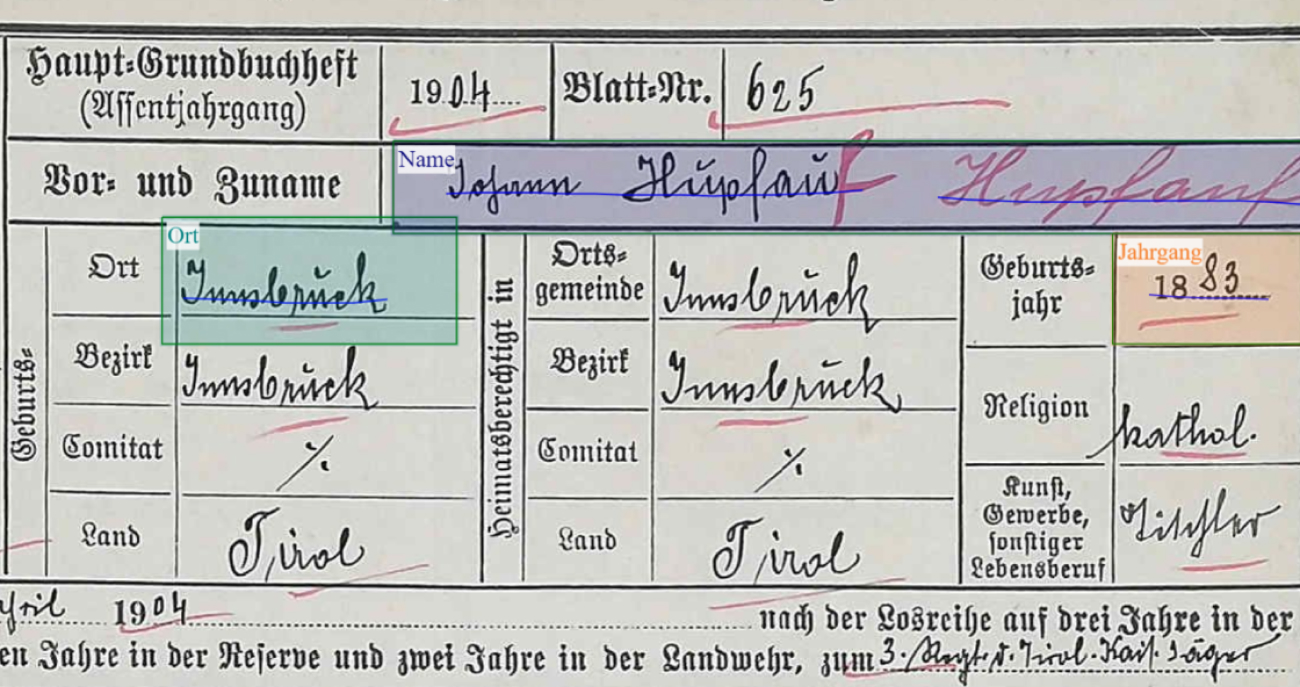 Haupt-Grundbuchheft (Assentjahrgang) 1904 Blatt-Nr. 625
Vor- und Zuname Name Johann Hupfauf Hupfauf
Geburts-
Ort Ort Innsbruck
Bezirk Innsbruck
Comitat ./.
Land Tirol
Heimatsberechtigt in
Ortsgemeinde Innsbruck
Bezirk Innsbruck
Comitat ./.
Land Tirol
Geburtsjahr Jahrgang 1883
Religion kathol.
Kunst, Gewerbe, sonstiger Lebensberuf Tischler
1904 nach der Losreihe auf drei Jahre in der
en Jahre in der Reserve und zwei Jahre in der Landwehr, zum 3. Regt. d. Tirol. Kais. Jäger